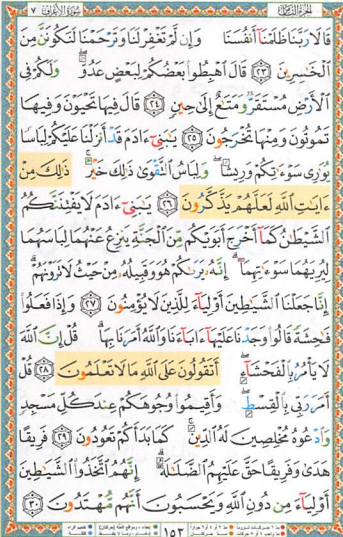 الجزء الثامن ٧ سورة الأعراف
قَالَا رَبَّنَا ظَلَمْنَآ أَنفُسَنَا وَإِن لَّمْ تَغْفِرْ لَنَا وَتَرْحَمْنَا لَنَكُونَنَّ مِنَ
ٱلْخَٰسِرِينَ ٢٣ قَالَ ٱهْبِطُوا۟ بَعْضُكُمْ لِبَعْضٍ عَدُوٌّ وَلَكُمْ فِى
ٱلْأَرْضِ مُسْتَقَرٌّ وَمَتَٰعٌ إِلَىٰ حِينٍ ٢٤ قَالَ فِيهَا تَحْيَوْنَ وَفِيهَا
تَمُوتُونَ وَمِنْهَا تُخْرَجُونَ ٢٥ يَٰبَنِىٓ ءَادَمَ قَدْ أَنزَلْنَا عَلَيْكُمْ لِبَاسًا
يُوَٰرِى سَوْءَٰتِكُمْ وَرِيشًا وَلِبَاسُ ٱلتَّقْوَىٰ ذَٰلِكَ خَيْرٌ ذَٰلِكَ مِنْ
ءَايَٰتِ ٱللَّهِ لَعَلَّهُمْ يَذَّكَّرُونَ ٢٦ يَٰبَنِىٓ ءَادَمَ لَا يَفْتِنَنَّكُمُ
ٱلشَّيْطَٰنُ كَمَآ أَخْرَجَ أَبَوَيْكُم مِّنَ ٱلْجَنَّةِ يَنزِعُ عَنْهُمَا لِبَاسَهُمَا
لِيُرِيَهُمَا سَوْءَٰتِهِمَآ إِنَّهُۥ يَرَىٰكُمْ هُوَ وَقَبِيلُهُۥ مِنْ حَيْثُ لَا تَرَوْنَهُمْ
إِنَّا جَعَلْنَا ٱلشَّيَٰطِينَ أَوْلِيَآءَ لِلَّذِينَ لَا يُؤْمِنُونَ ٢٧ وَإِذَا فَعَلُوا۟
فَٰحِشَةً قَالُوا۟ وَجَدْنَا عَلَيْهَآ ءَابَآءَنَا وَٱللَّهُ أَمَرَنَا بِهَا قُلْ إِنَّ ٱللَّهَ
لَا يَأْمُرُ بِٱلْفَحْشَآءِ أَتَقُولُونَ عَلَى ٱللَّهِ مَا لَا تَعْلَمُونَ ٢٨ قُلْ
أَمَرَ رَبِّى بِٱلْقِسْطِ وَأَقِيمُوا۟ وُجُوهَكُمْ عِندَ كُلِّ مَسْجِدٍ
وَٱدْعُوهُ مُخْلِصِينَ لَهُ ٱلدِّينَ كَمَا بَدَأَكُمْ تَعُودُونَ ٢٩ فَرِيقًا
هَدَىٰ وَفَرِيقًا حَقَّ عَلَيْهِمُ ٱلضَّلَٰلَةُ إِنَّهُمُ ٱتَّخَذُوا۟ ٱلشَّيَٰطِينَ
أَوْلِيَآءَ مِن دُونِ ٱللَّهِ وَيَحْسَبُونَ أَنَّهُم مُّهْتَدُونَ ٣٠
١٥٣